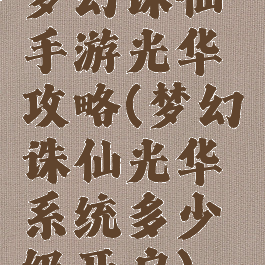 梦幻诛仙
手游光华
攻略(梦幻
诛仙光华
系统多少
级开启)